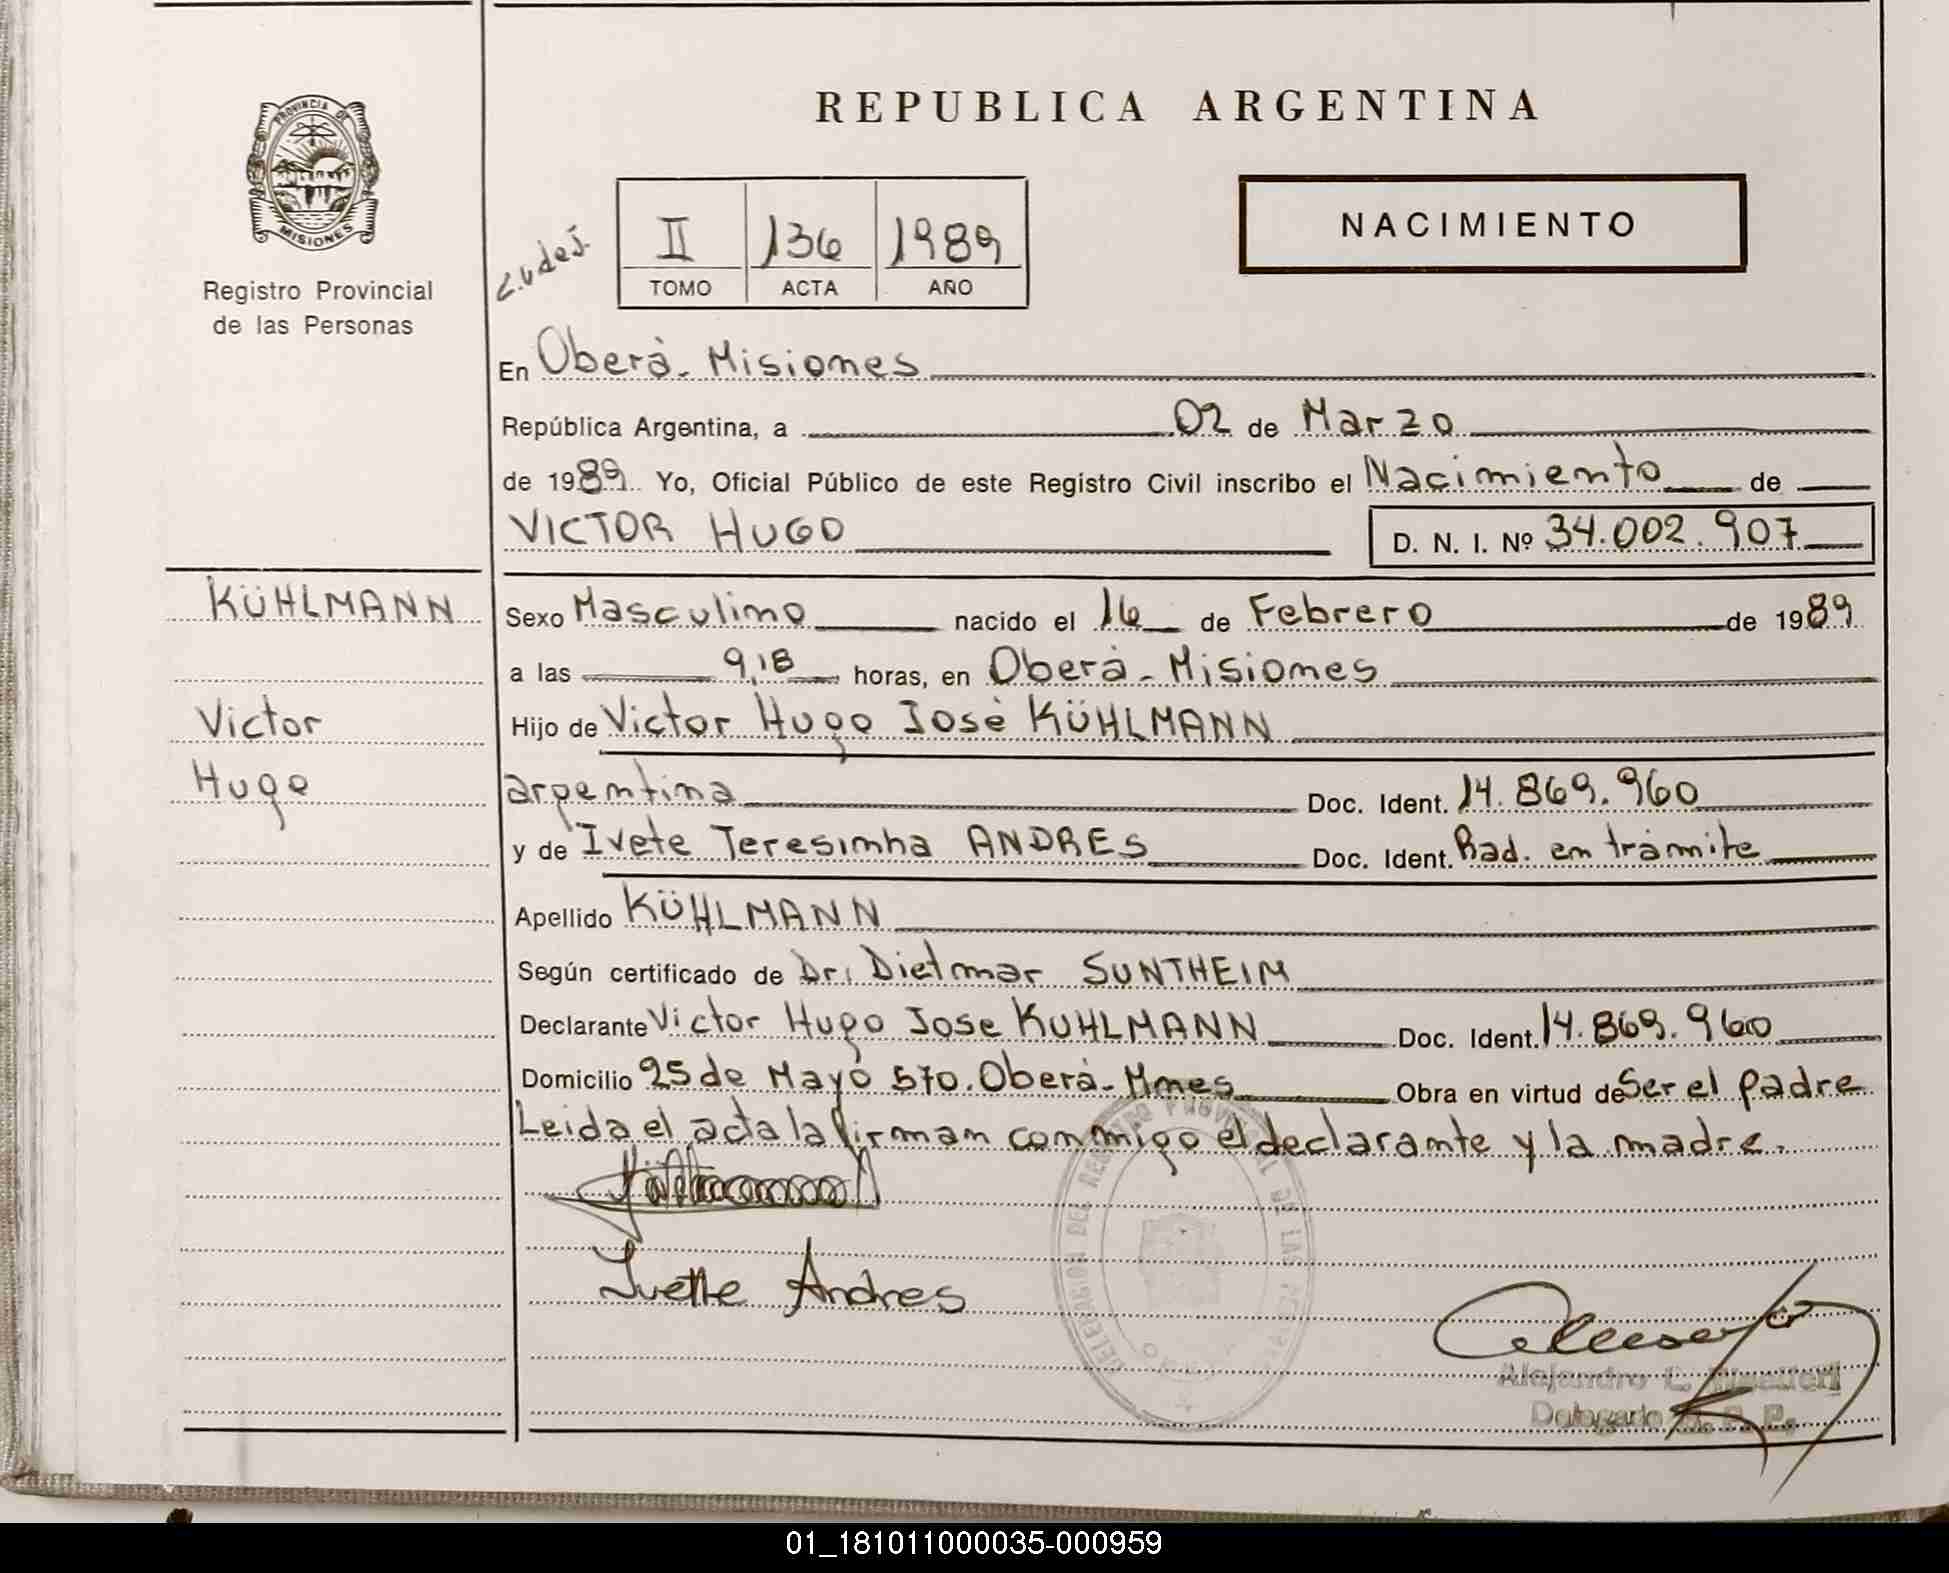 REPUBLICA ARGENTINA
PROVINCIA DE
MISIONES
Registro Provincial
de las Personas
II 136 1989
TOMO ACTA AÑO
NACIMIENTO
En Oberá - Misiones
República Argentina, a 02 de Marzo
de 1989 Yo, Oficial Público de este Registro Civil inscribo el Nacimiento de
VICTOR HUGO D. N. I. Nº 34.002.907
KÜHLMANN
Victor
Hugo
Sexo Masculino nacido el 16 de Febrero de 1989
a las 9,18 horas, en Oberá - Misiones
Hijo de Victor Hugo José KÜHLMANN
argentina Doc. Ident. 14.869.960
y de Ivete Teresinha ANDRES Doc. Ident. Rad. en trámite
Apellido KÜHLMANN
Según certificado de Dr. Dietmar SUNTHEIM
Declarante Victor Hugo Jose KUHLMANN Doc. Ident. 14.869.960
Domicilio 25 de Mayo 570. Oberá - Mnes Obra en virtud de Ser el padre
Leida el acta la firman conmigo el declarante y la madre.
Ivette Andres
DELEGACION DEL REGISTRO PROVINCIAL DE LAS
Alejandro
Delegado R. P. P.
01_181011000035-000959